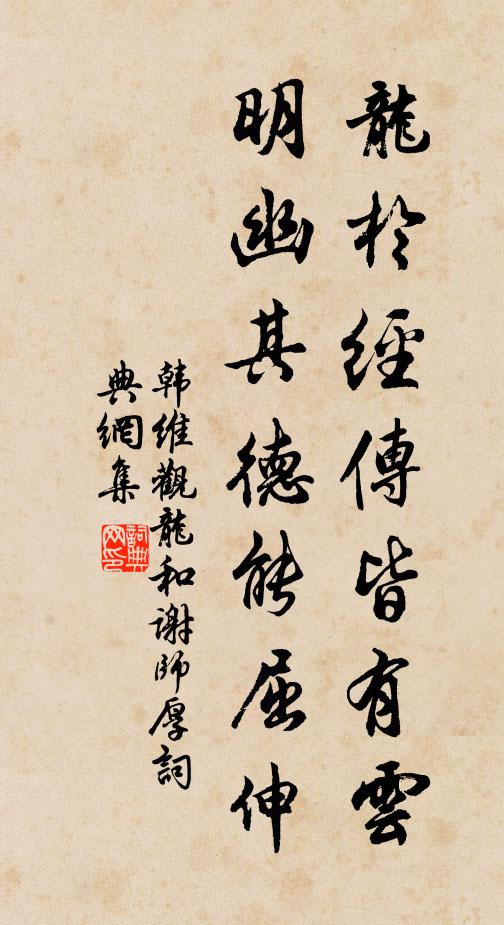 龍於經傳皆有雲
明幽其德能屈伸
韩維觀龍和谢師厚詞
典網集
詞典网印